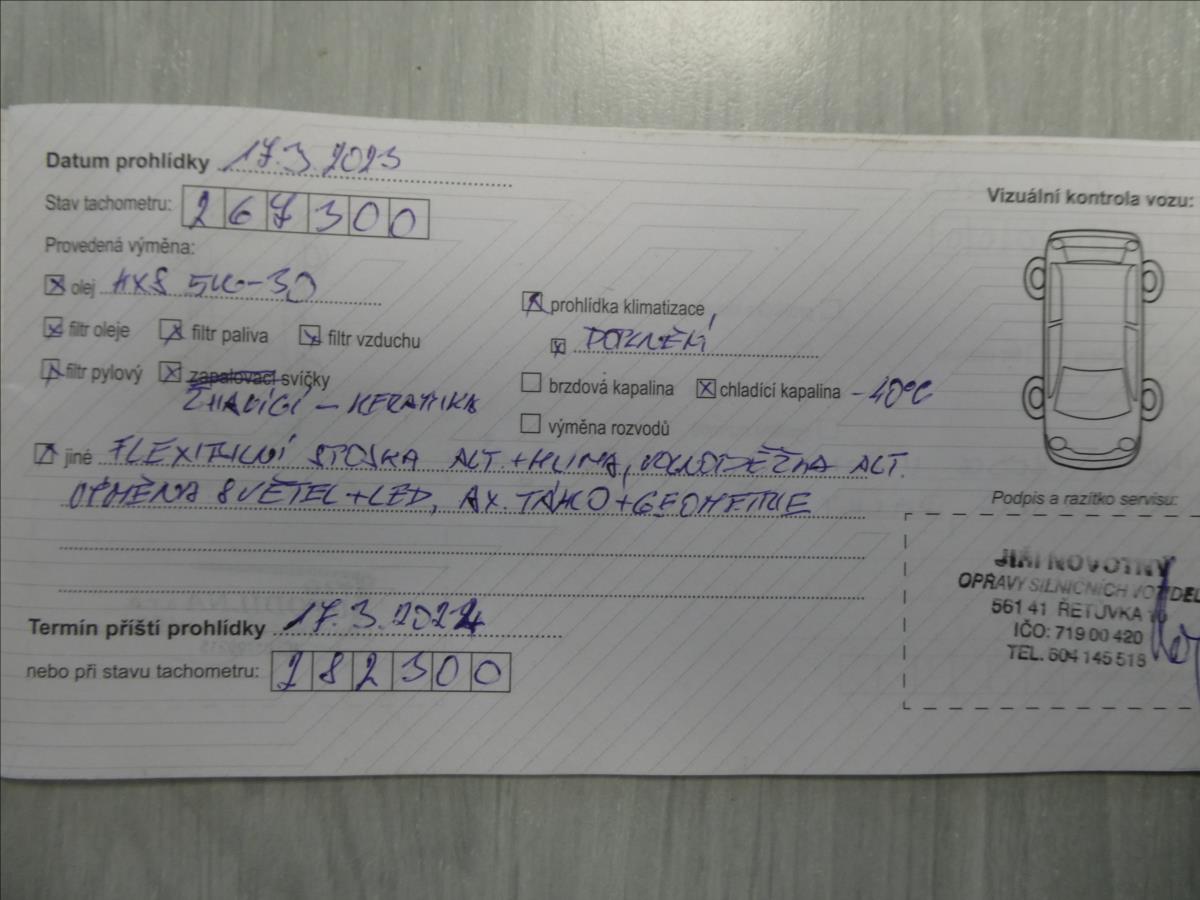 Datum prohlídky 17.3.2023
Stav tachometru: 267300
Provedená výměna:
olej HX8 5W-30
filtr oleje filtr paliva filtr vzduchu
filtr pylový zapalovací svíčky
ŽHAVÍCÍ - KERAMIKA
prohlídka klimatizace,
DOPLNĚNÍ
brzdová kapalina chladící kapalina -40°C
výměna rozvodů
jiné FLEXIBILNÍ SPOJKA ALT. + HLINA, VOLNOBĚŽKA ALT.
VÝMĚNA SVĚTEL + LED, AX. TÁHLO + GEOMETRIE
Termín příští prohlídky 17.3.2024
nebo při stavu tachometru: 282300
Vizuální kontrola vozu:
Podpis a razítko servisu:
JIŘÍ NOVOTNÝ
OPRAVY SILNIČNÍCH VOZIDEL
561 41 ŘETŮVKA
IČO: 719 00 420
TEL. 604 145 518